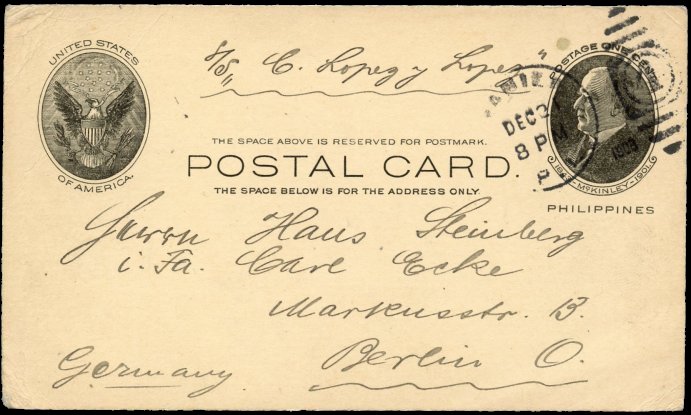 UNITED STATES
OF AMERICA.
S/S „ C. Lopez y Lopez "
POSTAGE ONE CENT
DEC 2
8 PM
1903
THE SPACE ABOVE IS RESERVED FOR POSTMARK.
POSTAL CARD.
THE SPACE BELOW IS FOR THE ADDRESS ONLY.
1843-MCKINLEY-1901
PHILIPPINES
Herrn Hans Steinberg
i. Fa. Carl Ecke
Markusstr. 13.
Berlin O.
Germany